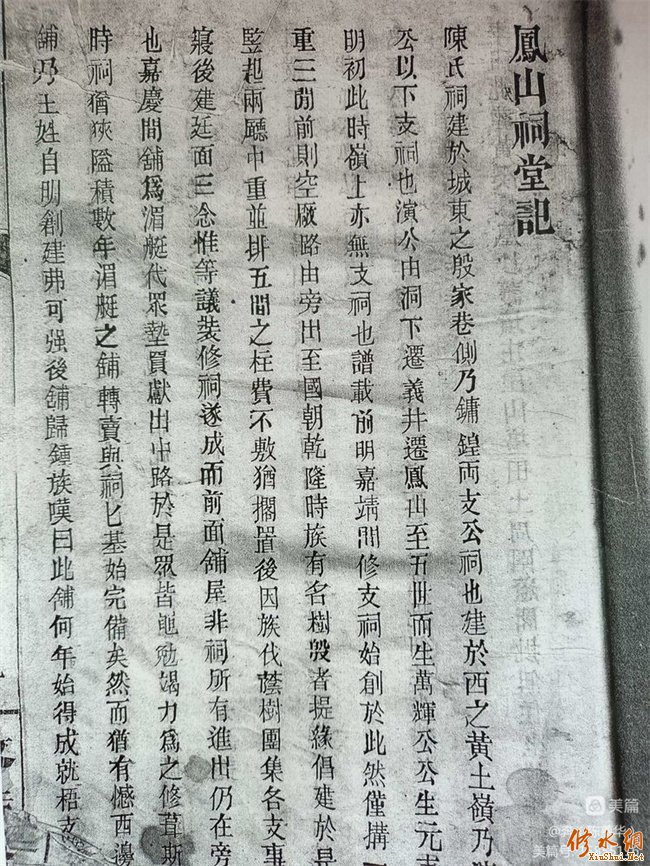 鳳山祠堂記
陳氏祠建於城東之殷家巷側乃鏞鍠両支公祠也建於西之黃土嶺乃
公以下支祠也演公由洞下遷義井遷鳳山至五世而生萬輝公公生元
明初此時嶺上亦無支祠也譜載前明嘉靖間修支祠始創於此然僅搆一
重三間前則空厰路由旁出至國朝乾隆時族有名樹殷者提緣倡建於是
監起兩廳中重並排五間之柱費不敷猶擱置後因族伐蔭樹團集各支事
寢後建廷面三念惟等議裝修祠遂成而前面舖屋非祠所有進出仍在旁
也嘉慶間舖爲湄艇代眾墊買獻出中路於是眾皆黽勉竭力爲之修葺斯
時祠猶狹隘積數年湄艇之舖轉賣與祠匕基始完備矣然而猶有憾西邊
舖乃王姓自明創建弗可強後舖歸鍾族嘆曰此舖何年始得成就梧支
美篇
修水網
XiuShui.Net